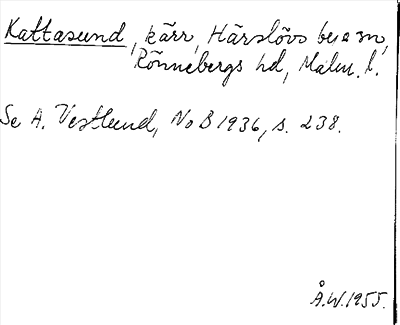 Kattasund, kärr, Härslövs by o sn,
Rönnebergs hd, Malm. l.
Se A. Vestlund, NoB 1936, s. 238.
Å.W. 1955.